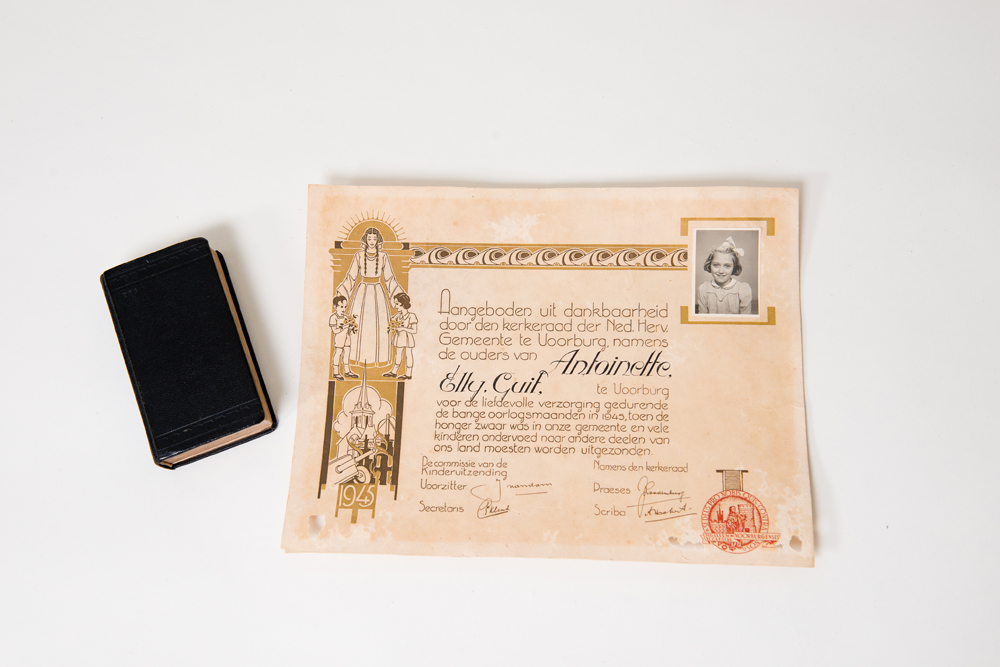 Aangeboden uit dankbaarheid
door den kerkeraad der Ned. Herv.
Gemeente te Voorburg, namens
de ouders van Antoinette,
Elly, Guif,
te Voorburg
voor de liefdevolle verzorging gedurende
de bange oorlogsmaanden in 1945, toen de
honger zwaar was in onze gemeente en vele
kinderen ondervoed naar andere deelen van
ons land moesten worden uitgezonden.
De commissie van de
Kinderuitzending
Voorzitter
Secretaris
Namens den kerkeraad
Praeses
Scriba
1945